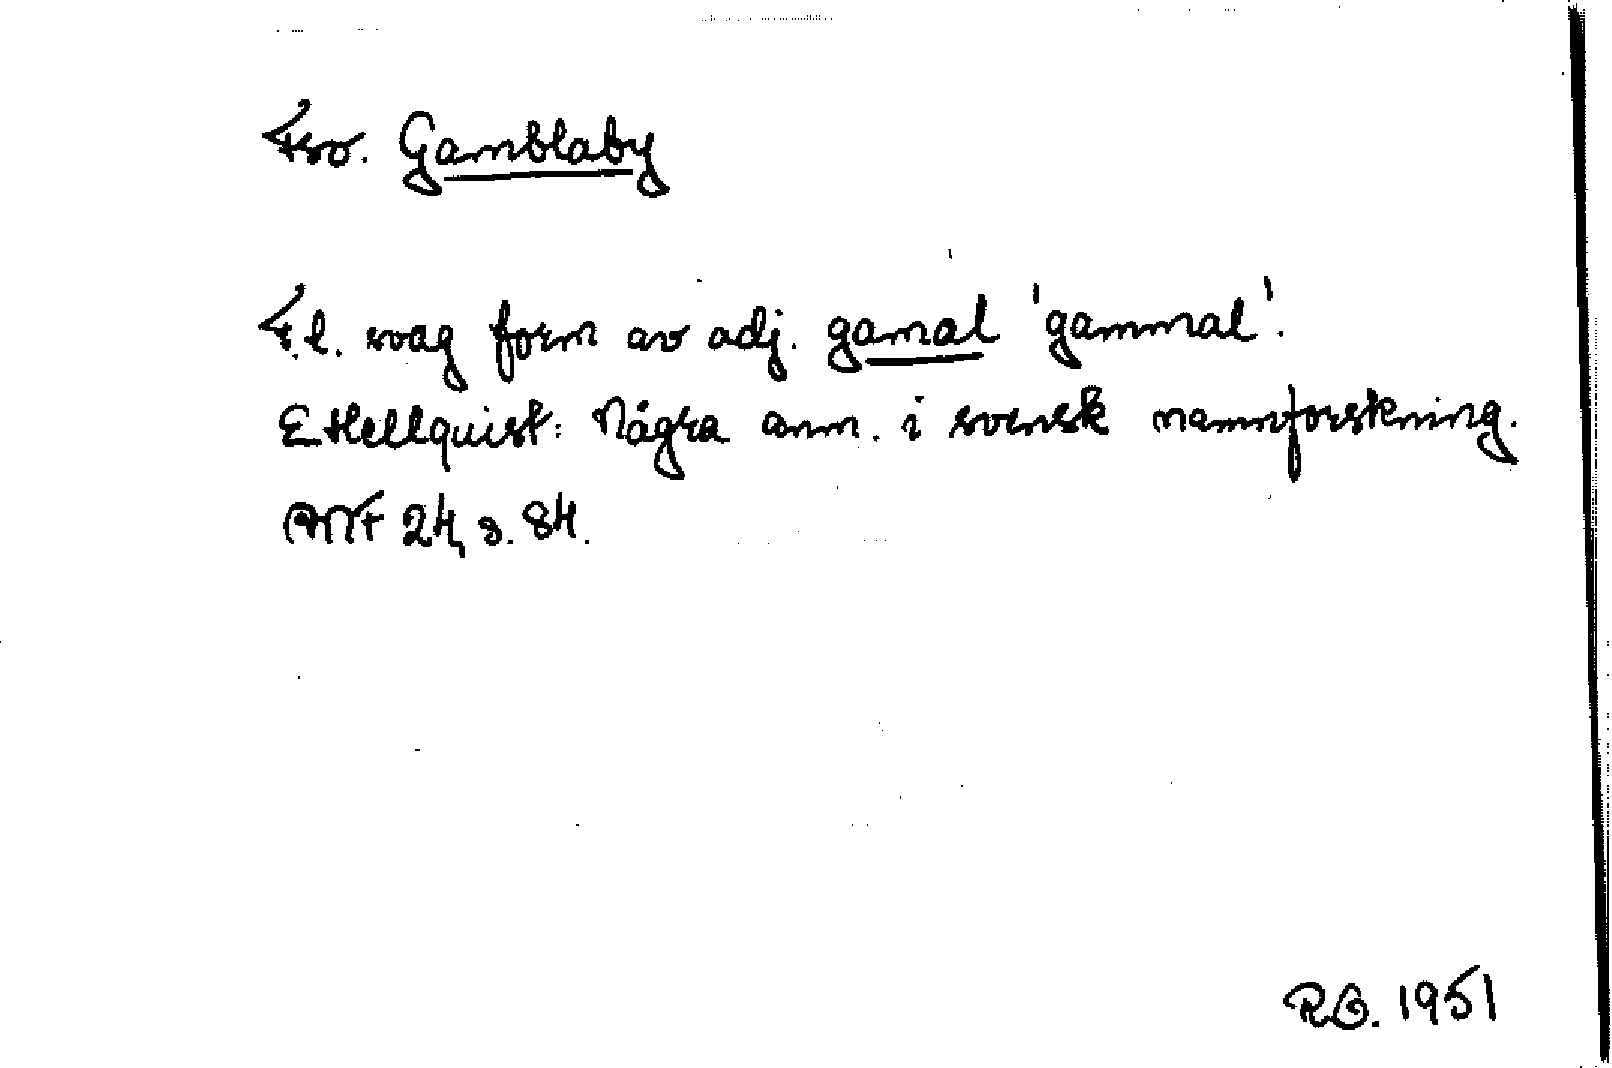 Fsv. Gamblaby
F.l. svag form av adj. gamal 'gammal'.
E Hellquist: Några anm. i svensk namnforskning.
ANF 24, s. 84.
RG. 1951